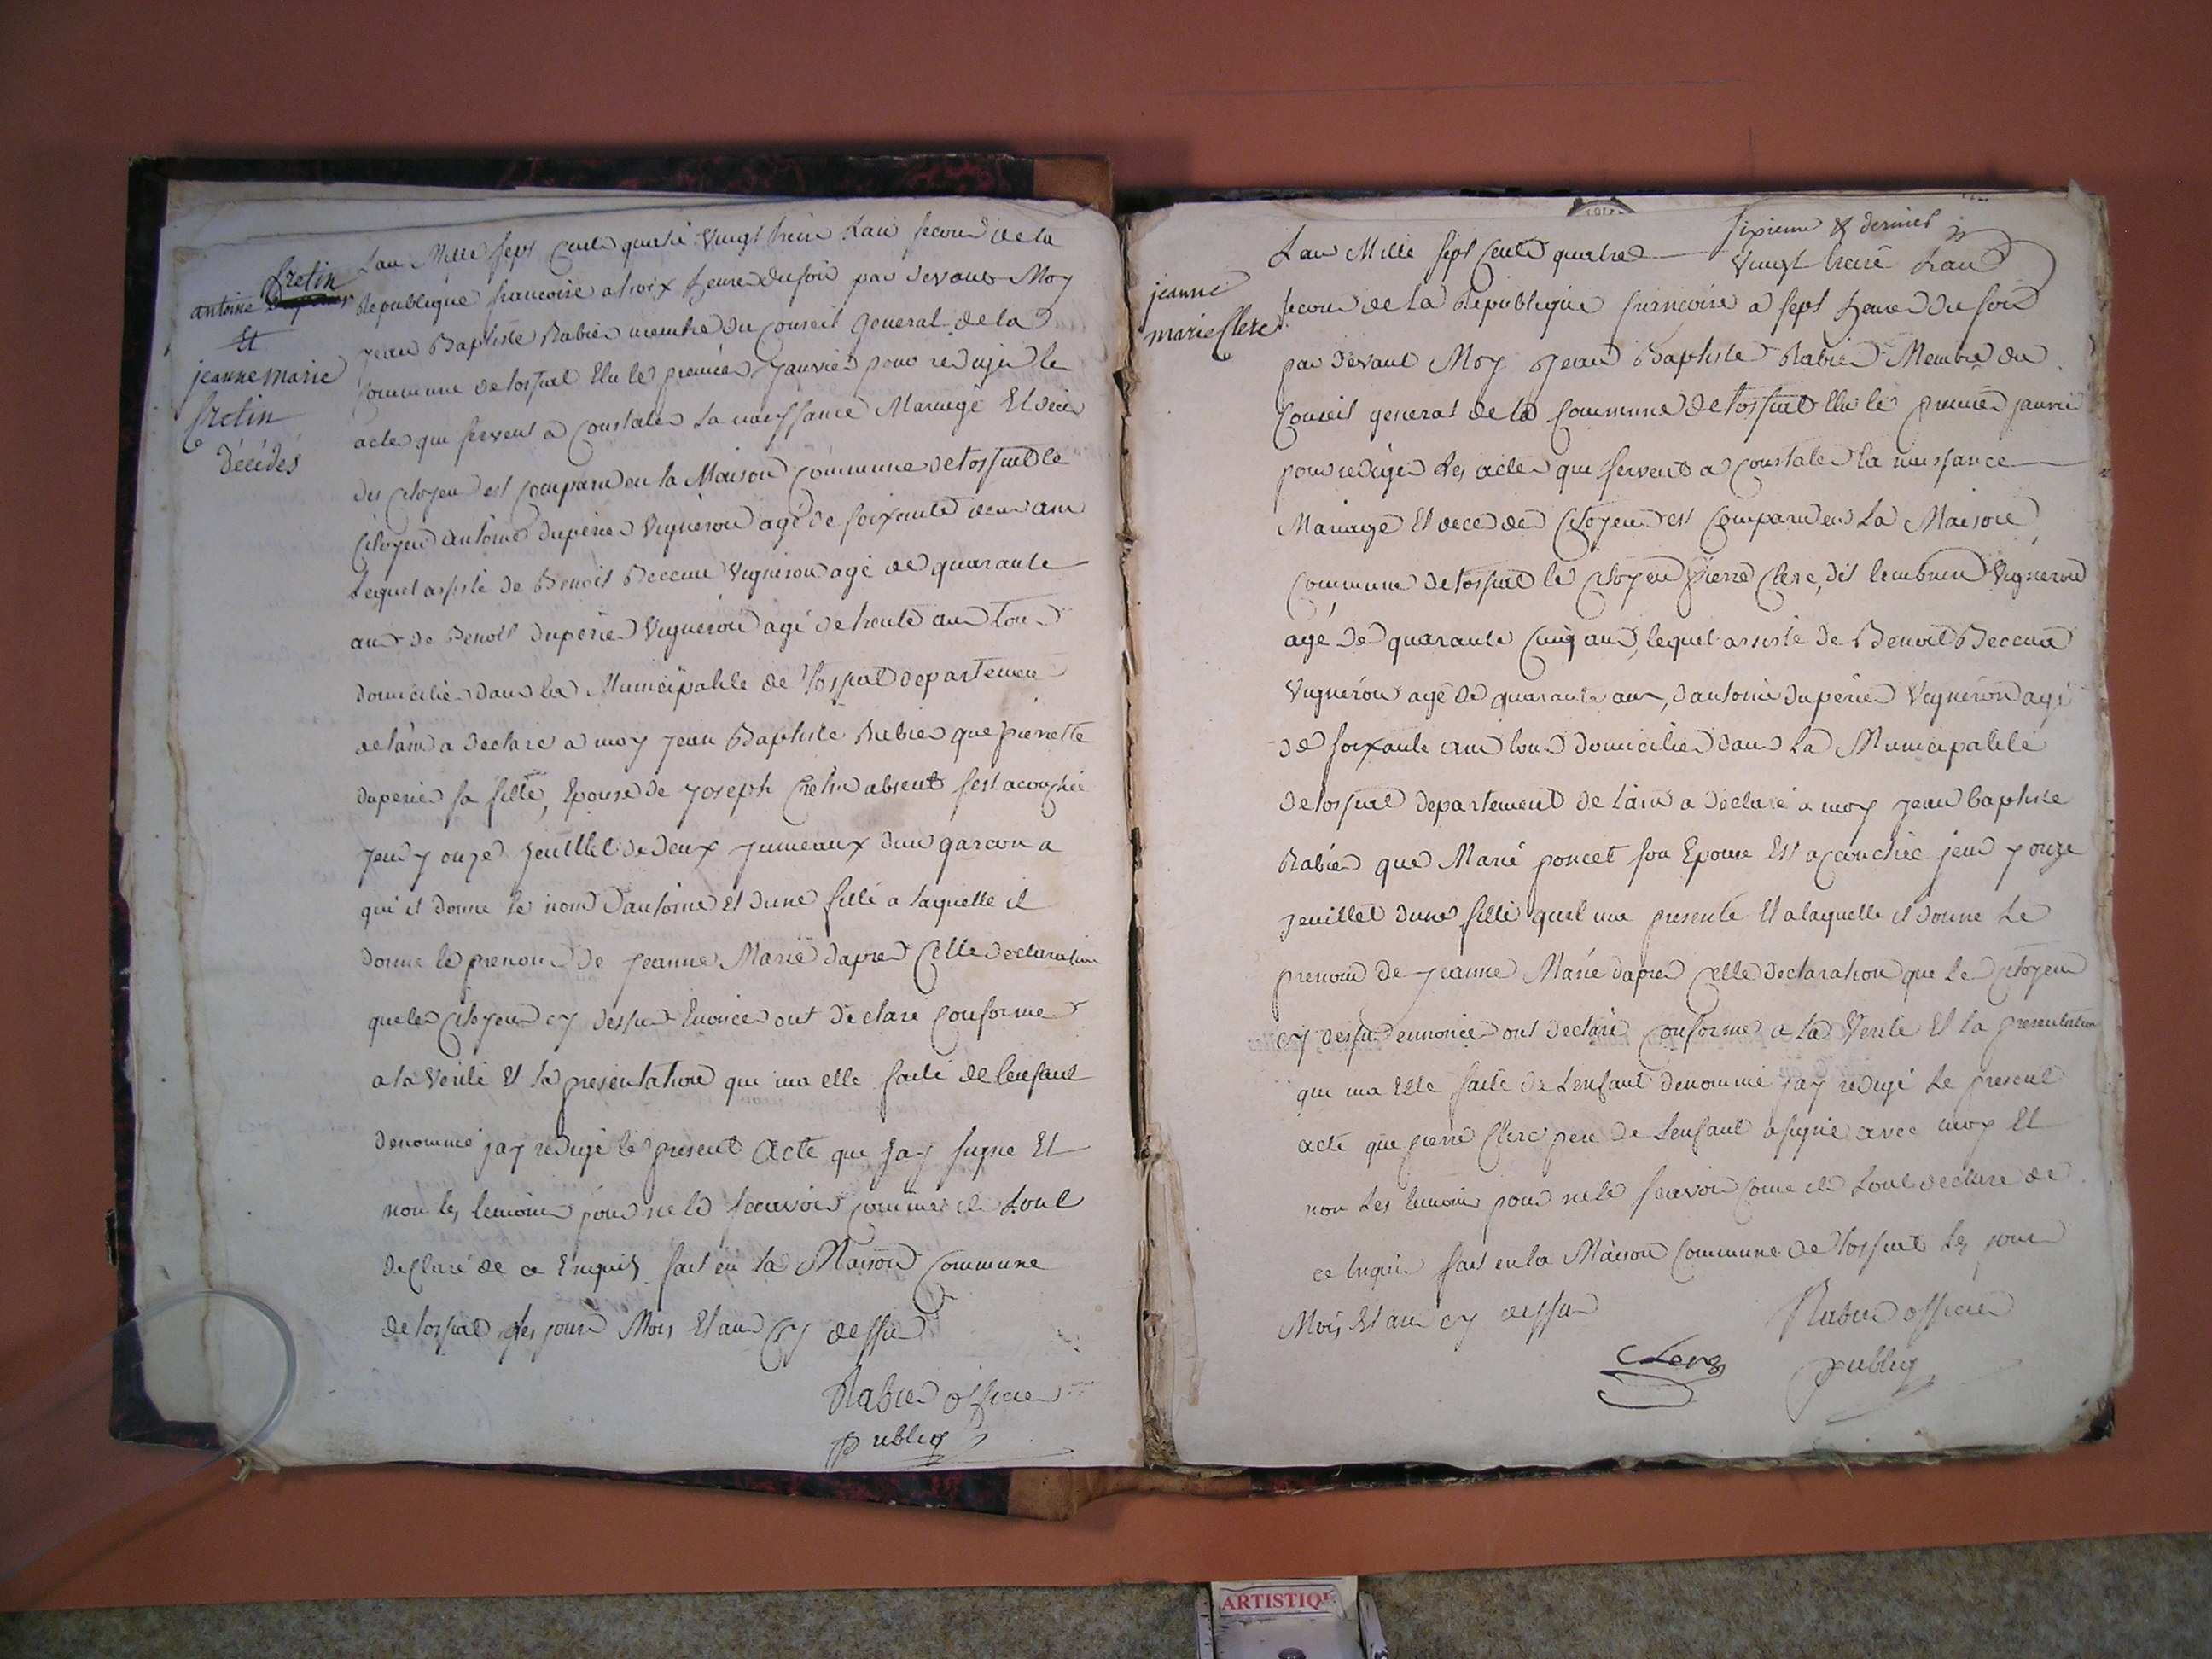 antoine Cretin
Et
jeanne marie
Cretin
décédés
Lan Mille sept Cent quatre Vingt treize Lan second de la
Republique francoise a troix heure du soir par devant Moy
jean Baptiste Rabier membre du Conseil General de la
Commune de tossiat Elu le premier janvier pour rediger le
actes qui servent a Constater La naissance Mariage Et deces
des citoyen est comparu en la Maison commune de tossiat le
Citoyen antoine duperier Vigneron agé de soixante deux ans
Lequel assisté de Benoit Beccuat Vigneron agé de quarante
ans de Benoit duperier Vigneron agé de trente ans tous
domiciliés dans la Municipalité de tossiat departement
de lain a declaré a moy jean Baptiste Rabier que pierrette
duperier sa fille, Epouse de joseph Cretin absent sest acouchée
jeudy onze jeuillet de deux jumeaux dun garcon a
qui il donne le nom dantoine et dune fille a laquelle il
donne le prenom de jeanne Marie dapres Cette declaration
que les citoyens cy dessus Enoncés ont declaré conforme
a la Verité Et la presentation qui ma eté faite de lenfant
denommé jay redigé le present Acte que jay signé Et
non les temoins pour ne le scavoir comme ils Lont
declaré de ce Enquis fait en la Maison Commune
de tossiat Les jours Mois Et an Cy dessus
Rabier officier
publiq
sixieme & dernier
jeanne
marie Clerc
Lan Mille sept Cent quatre Vingt treize Lan
second de la Republique francoise a sept heures du soir
par devant Moy jean Baptiste Rabier Membre du
Conseil general de la Commune de tossiat Elu le premier janvié
pour rediger Les actes qui servent a Constater la naissance
Mariage Et deces des Citoyens est Comparu en La Maison
Commune de tossiat le Citoyen pierre Clerc, dit Vigneron
agé de quarante Cinq ans, lequel assisté de Benoit Beccuat
Vigneron agé de quarante ans, dantoine duperier Vigneron agé
de soixante ans tous domiciliés dans La Municipalité
de tossiat departement de lain a declaré a moy jean baptiste
Rabier que Marie poncet son Epouse Est acouchée jeudy onze
jeuillet dune fille quil ma presenté Et a laquelle il donne Le
prenom de jeanne Marie dapres cette declaration que Les Citoyens
cy dessus ennoncés ont declaré conforme a La Verité Et La presentation
qui ma Eté faite de Lenfant denommé jay redigé Le present
acte que pierre Clerc pere de Lenfant a signé avec moy Et
non Les temoins pour ne le scavoir come ils Lont declaré de
ce Enquis fait en la Maison Commune de tossiat Les jours
Mois Et an cy dessus
Rabier officier
publiq
Clerc
ARTISTIQ